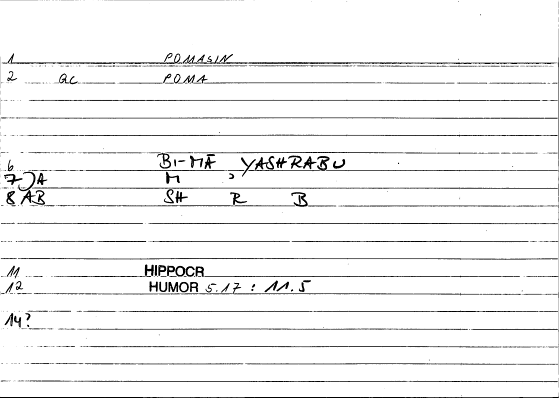 1 POMASIN
2 QC POMA
6 BI-MĀ YASHRABU
7 JA M ʾ
8 AB SH R B
11 HIPPOCR
12 HUMOR 5.17 : 11.5
14?